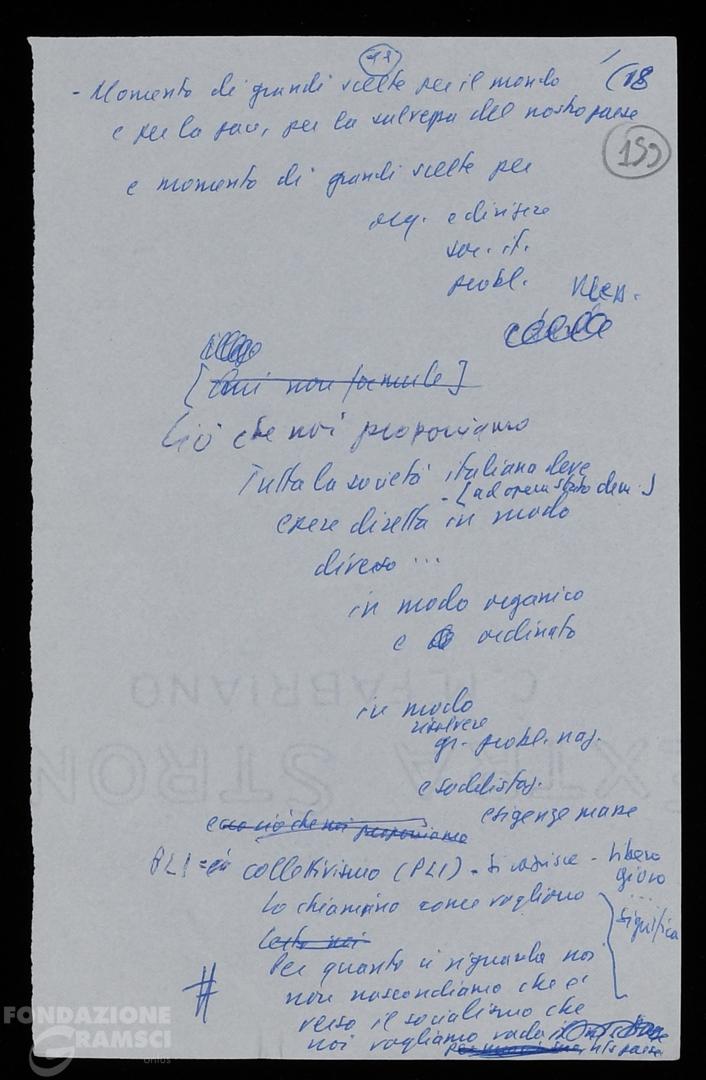 11
(18
- Momento di grandi scelte per il mondo
e per la pace, per la salvezza del nostro paese
159
e momento di grandi scelte per
org. e dirigere
soc. it.
probl.
[ non formule]
Ciò che noi proponiamo
Tutta la società italiana deve
- [ad opera stato dem.]
essere diretta in modo
diverso ...
in modo organico
e ordinato
in modo
risolvere
gr. probl. naz.
e soddisfaz.
esigenze masse
ecco ciò che noi proponiamo
PLI = collettivismo (PLI) - si capisce - libero
gioco
...
Lo chiamino come vogliono
significa
Certo noi
Per quanto ci riguarda noi
# non nascondiamo che è
verso il socialismo che
noi vogliamo vada
il ns paese
C. M. FABRIANO
EXTRA STRON
FONDAZIONE
GRAMSCI
onlus